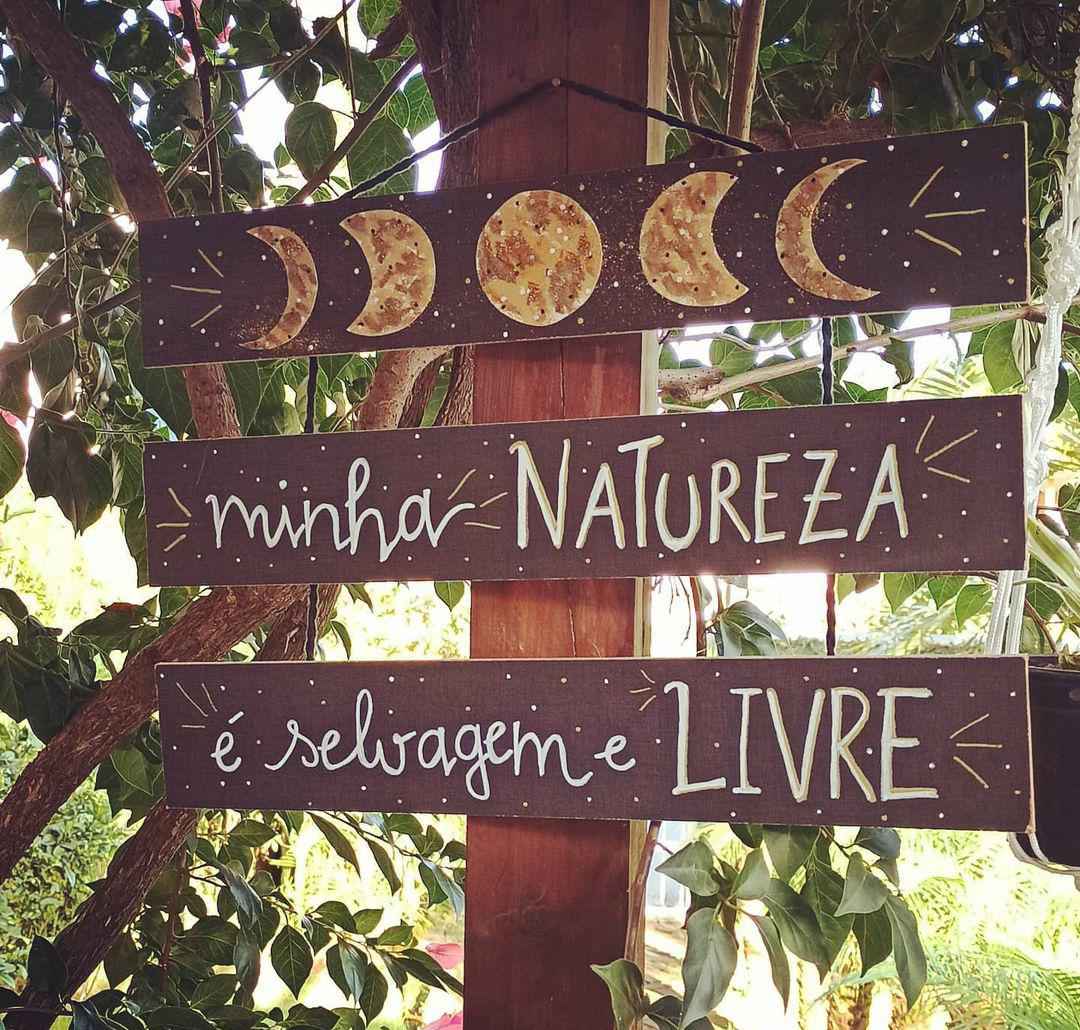 minha NATUREZA
é selvagem e LIVRE